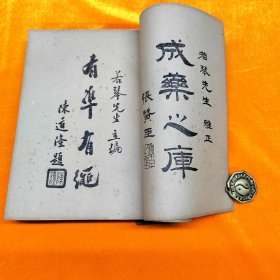 若琴先生 雅正
成藥之庫
張贊臣
若琴先生主編
有準有繩
陳遜隆題